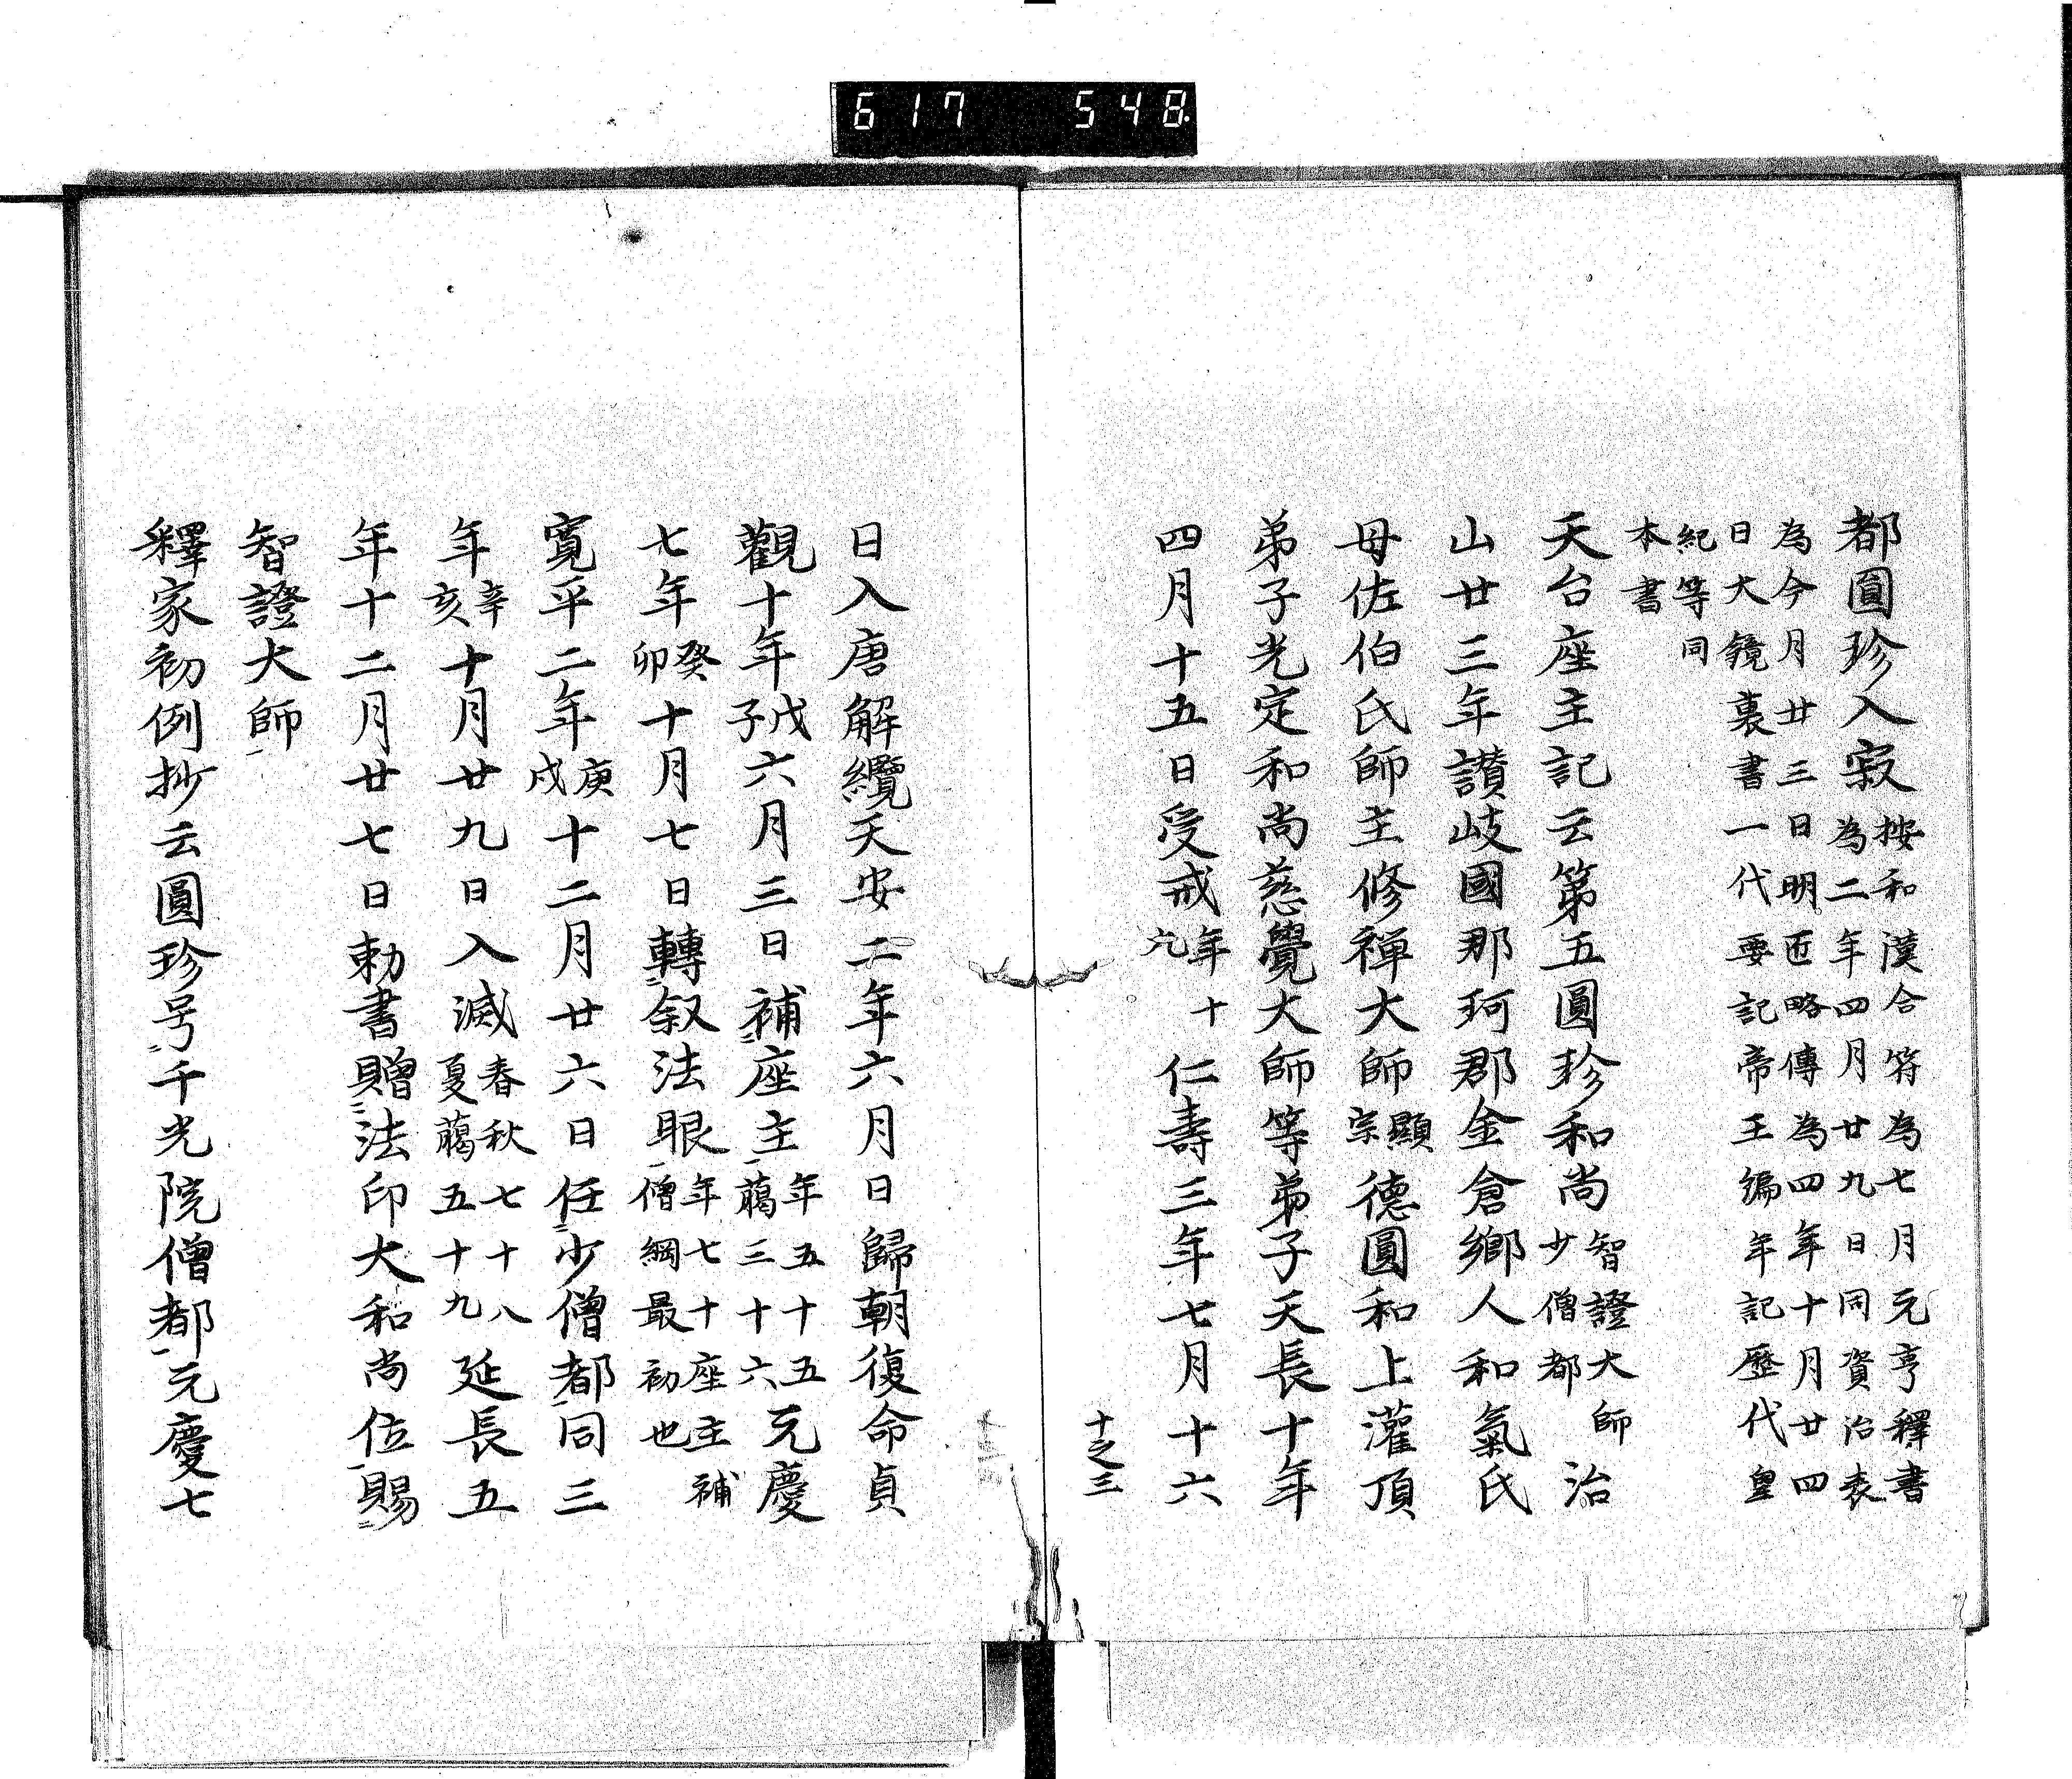 617 548
都圓珍入寂按和漢合符為七月元亨釋書
為二年四月廿九日同資治表
為今月廿三日明匠略傳為四年十月廿四
日大鏡裏書一代要記帝王編年記歷代皇
紀等同
本書
天台座主記云第五圓珍和尚智證大師少僧都治
山廿三年讃岐國那珂郡金倉郷人和氣氏
母佐伯氏師主修禅大師顯宗德圓和上灌頂
弟子光定和尚慈覺大師等弟子天長十年
四月十五日受戒年十九仁壽三年七月十六
十之三
日入唐解纜天安二年六月日歸朝復命貞
觀十年戊子六月三日補座主年五十五﨟三十六元慶
七年癸卯十月七日轉叙法眼年七十座主補僧綱最初也
寛平二年庚戌十二月廿六日任少僧都同三
年辛亥十月廿九日入滅春秋七十八夏﨟五十九延長五
年十二月廿七日勅書贈法印大和尚位賜
智證大師
釋家初例抄云圓珍号千光院僧都元慶七